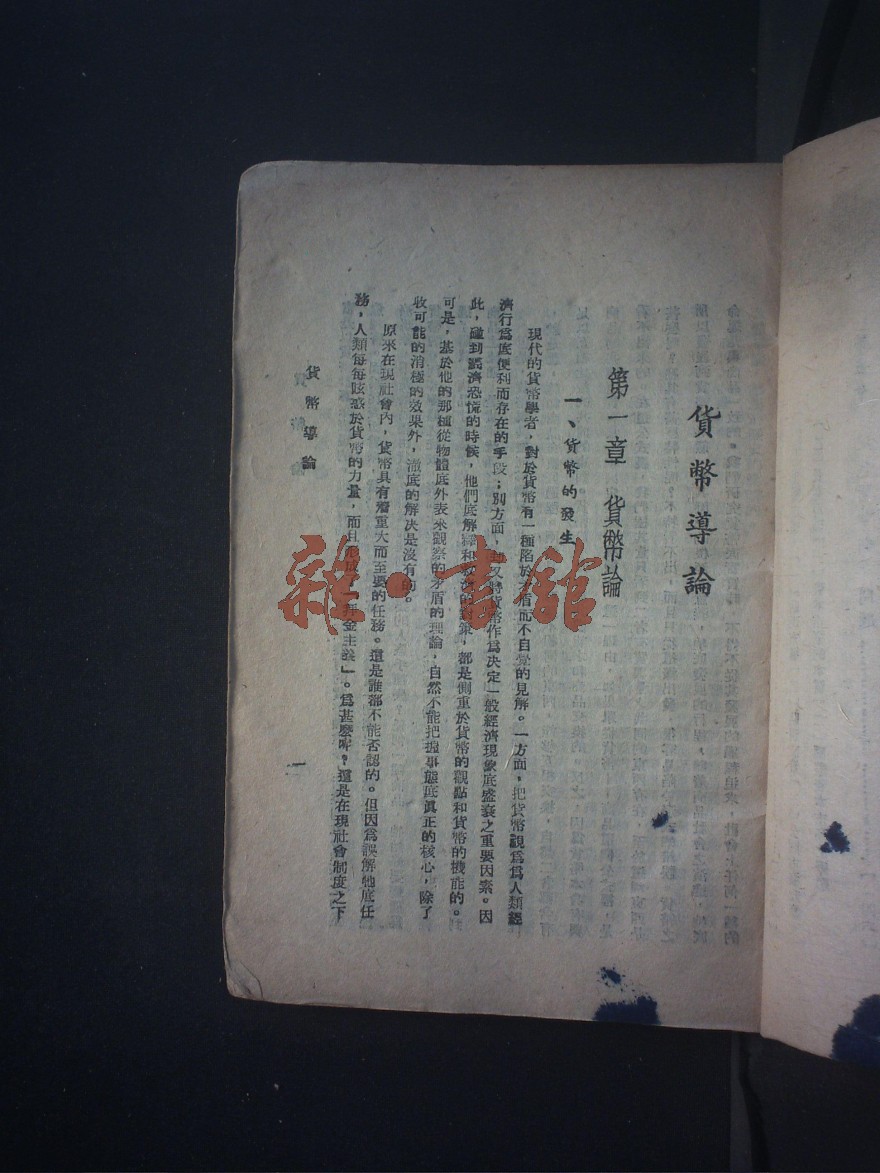 貨幣導論
第一章 貨幣論
一、貨幣的發生
現代的貨幣學者，對於貨幣有一種陷於矛盾而不自覺的見解。一方面，把貨幣視爲爲人類經
濟行爲底便利而存在的手段；別方面，却又將貨幣作爲決定一般經濟現象底盛衰之重要因素。因
此，碰到經濟恐慌的時候，他們底解釋和救濟的對策，都是側重於貨幣的觀點和貨幣的機能的。
可是，基於他的那種從物體底外表來觀察的矛盾的理論，自然不能把握事態底眞正的核心，除了
收可能的消極的效果外，澈底的解決是沒有的。
原來在現社會內，貨幣具有着重大而至要的任務。這是誰都不能否認的。但因爲誤解牠底任
務，人類每每眩惑於貨幣的力量，而且形成「拜金主義」。爲甚麼呢？這是在現社會制度之下
貨幣導論
一
雜·書館